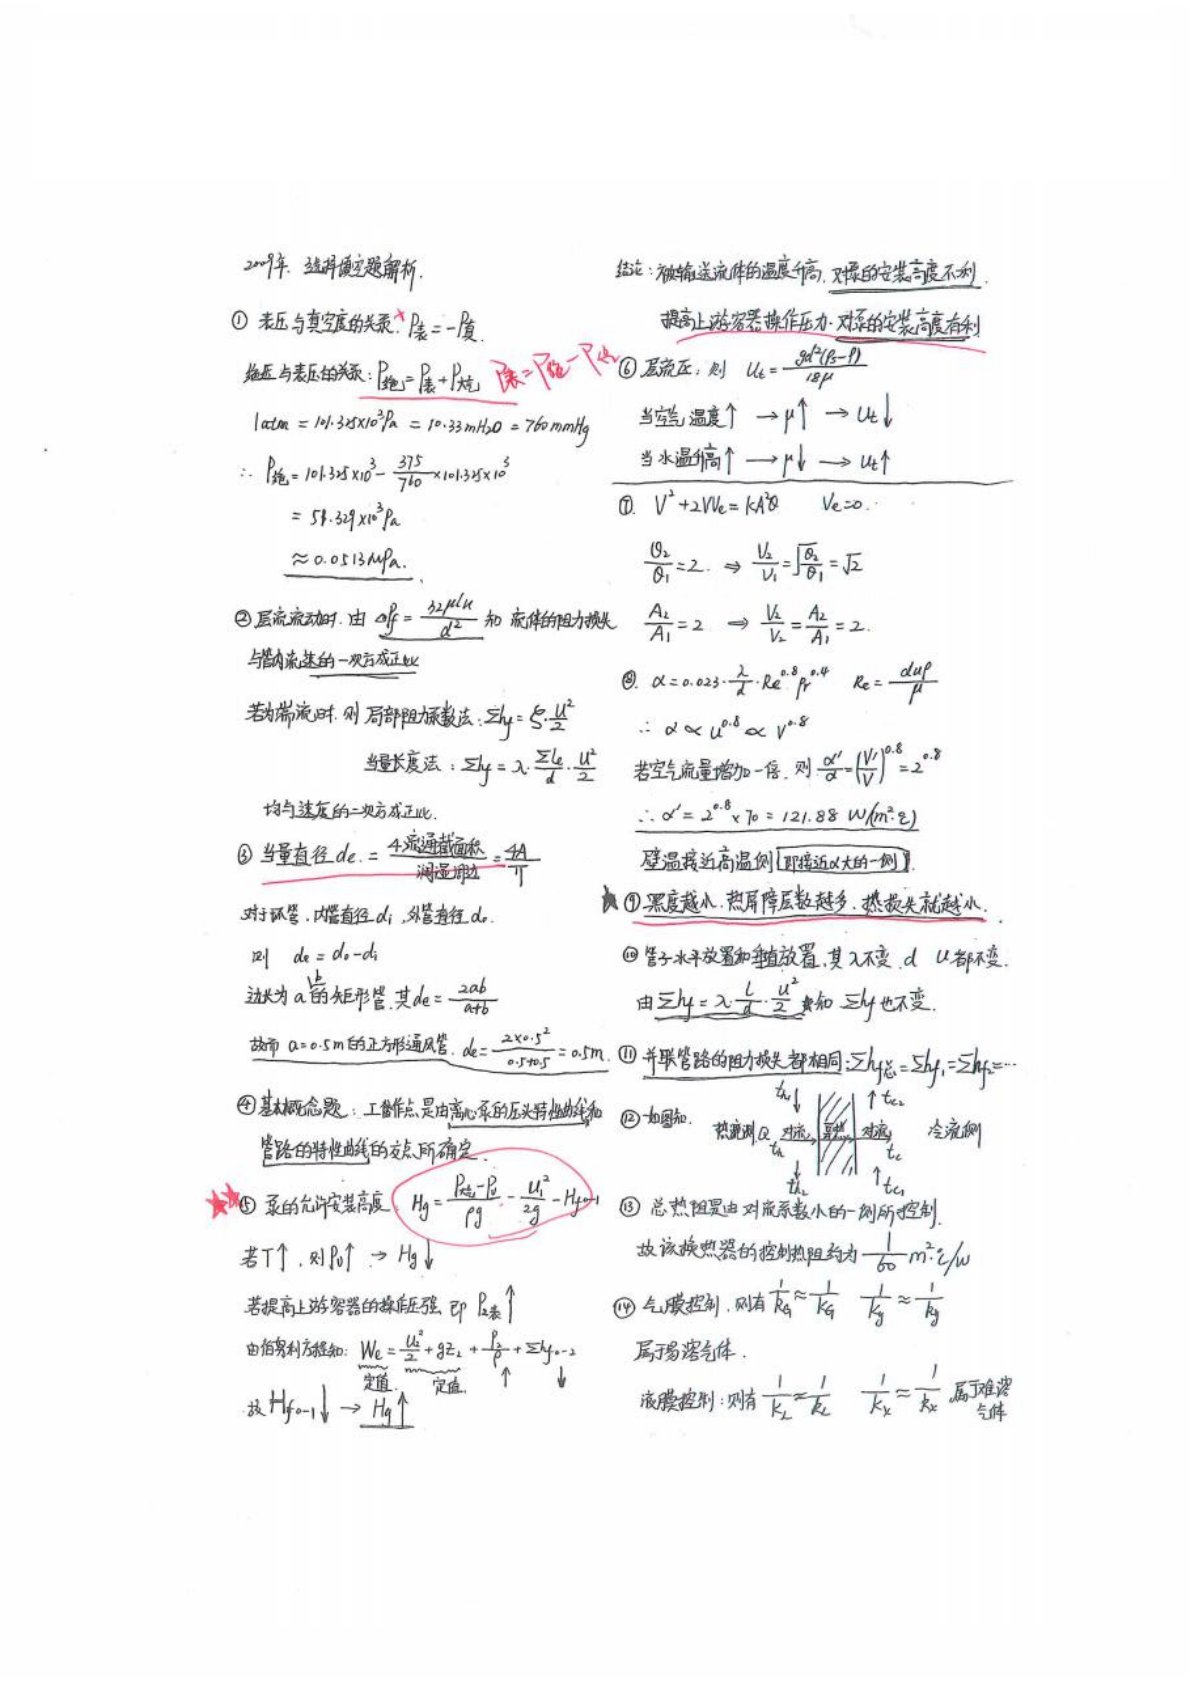 2009年. 选择填空题解析.
① 表压与真空度的关系: P表=-P真
绝压与表压的关系: P绝=P表+P大气 P表=P绝-P大气
1atm = 101.325×10³Pa = 10.33mH₂O = 760mmHg
∴ P绝=101.325×10³-375/760×101.325×10³
= 51.329×10³Pa
≈0.0513MPa.
② 层流流动时.由 ΔPf=32μlu/d² 知 流体的阻力损失
与管内流速的一次方成正比
若为湍流时.则局部阻力系数法:Σhf=ξ·u²/2
当量长度法:Σhf=λ·Σle/d·u²/2
均与速度的二次方成正比.
③ 当量直径de.=4·流通截面积/润湿周边=4A/Π
对于环管.内管直径di,外管直径do.
则 de=do-di
边长为a b的矩形管,其de=2ab/a+b
故而 a=0.5m的正方形通风管. de=2×0.5²/0.5+0.5=0.5m.
④ 基本概念题:工作点是由离心泵的压头特性曲线和
管路的特性曲线的交点所确定.
⑤ 泵的允许安装高度 Hg=P大气-Pv/ρg-u₁²/2g-Hf0-1
若T↑,则Pv↑→Hg↓
若提高上游容器的操作压强,即 P表↑
由伯努利方程知: We=u₂²/2+gz₂+P₂/ρ+Σhf0-2
定值 定值. ↑ ↓
故Hf0-1↓→Hg↑
结论:被输送流体的温度升高,对泵的安装高度不利.
提高上游容器操作压力.对泵的安装高度有利
⑥ 层流区,则 Ut=gd²(ρs-ρ)/18μ
当空气温度↑→μ↑→Ut↓
当水温升高↑→μ↓→Ut↑
⑦. V²+2VVe=KA²θ Ve=0.
θ₂/θ₁=2. ⇒ V₂/V₁=√θ₂/θ₁=√2
A₂/A₁=2 ⇒ V₂/V₂=A₂/A₁=2.
⑧. α=0.023·λ/d·Re^0.8 Pr^0.4 Re=duρ/μ
∴ α∝u^0.8∝V^0.8
若空气流量增加一倍,则 α'/α=(V'/V)^0.8=2^0.8
∴α'=2^0.8×70=121.88 W/(m²·℃)
壁温接近高温侧[即接近α大的一侧].
★⑨ 黑度越小.热屏障层数越多.热损失就越小.
⑩ 管子水平放置和垂直放置,其λ不变.d u都不变.
由Σhf=λ·l/d·u²/2 知Σhf也不变.
⑪ 并联管路的阻力损失都相同:Σhf总=Σhf₁=Σhf₂=…
⑫ 如图知. th₁↓ ↑tc₂
热流侧Q 对流 导热 对流 冷流侧
th tc
th₂ ↑tc₁
⑬ 总热阻是由对流系数小的一侧所控制.
故该换热器的控制热阻约为 1/60 m²·℃/W
⑭ 气膜控制,则有 1/KG≈1/kG 1/Ky≈1/ky
属于易溶气体.
液膜控制:则有 1/KL≈1/kL 1/Kx≈1/kx 属于难溶
气体